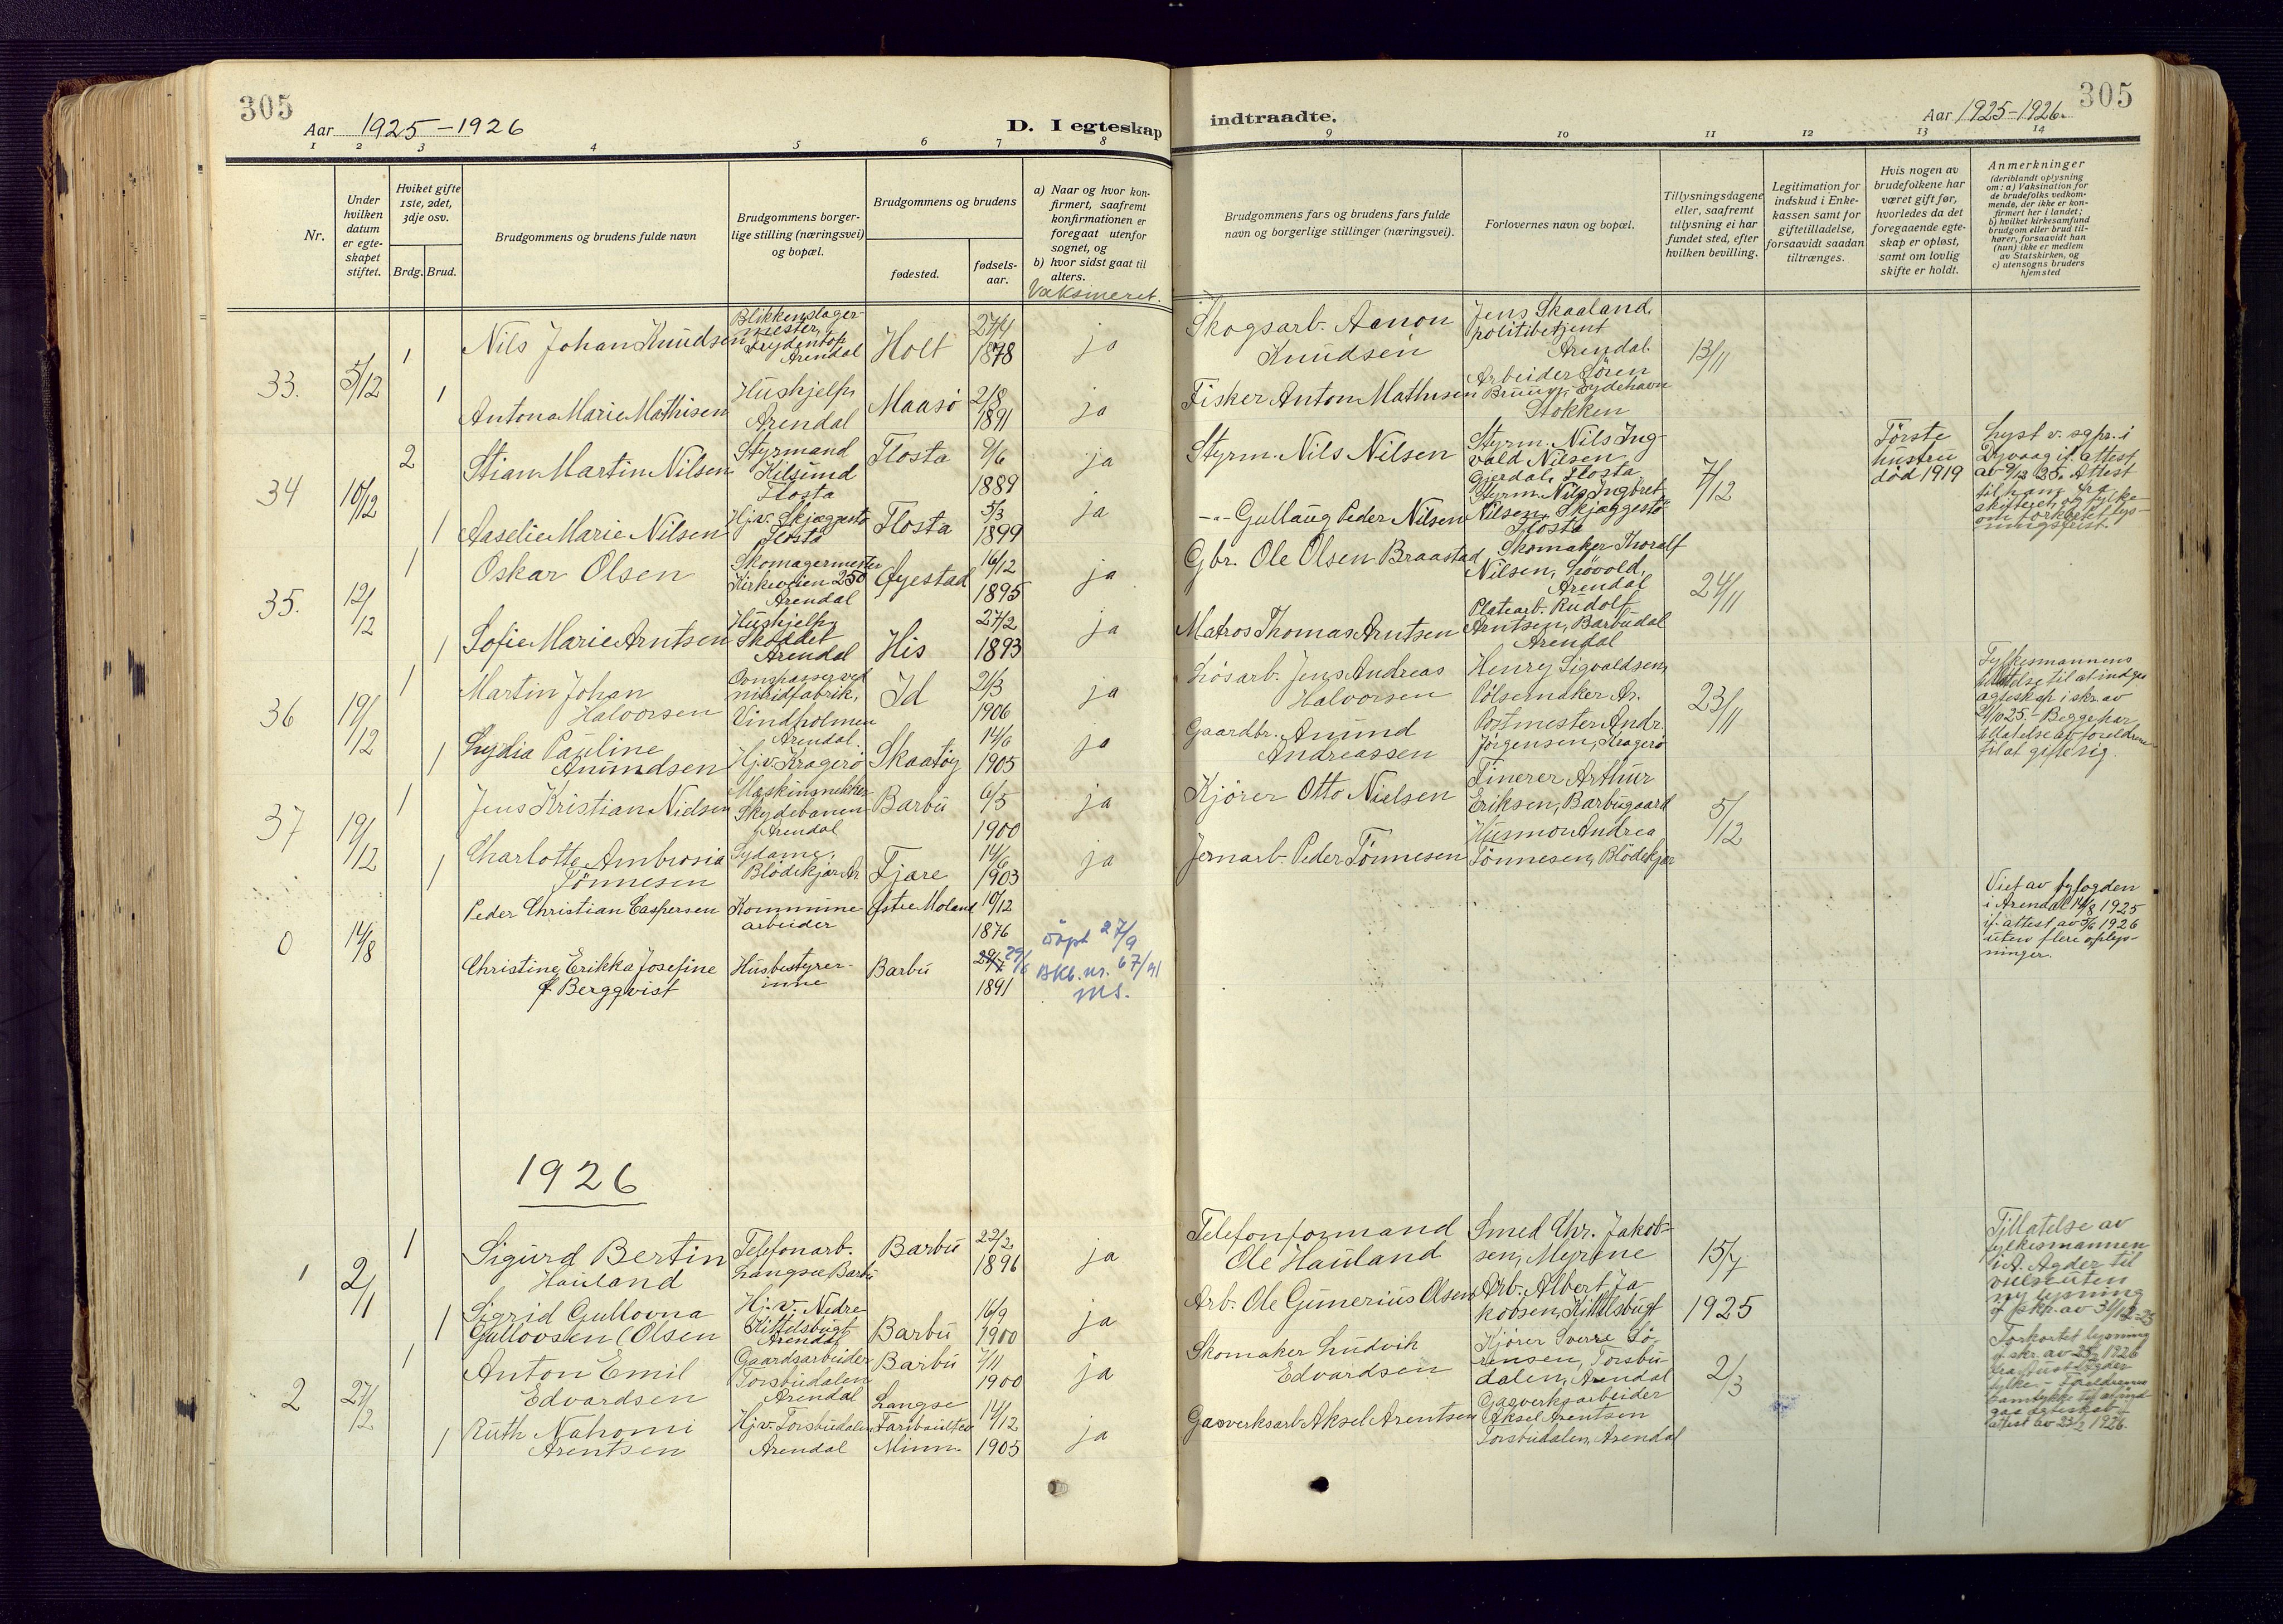 305
Aar 1925-1926
D. I egteskap
1 2 3 4 5 6 7 8
Nr.
Under hvilken datum er egteskapet stiftet.
Hviket gifte 1ste, 2det, 3dje osv.
Brdg. Brud.
Brudgommens og brudens fulde navn
Brudgommens borger-
lige stilling (næringsvei)
og bopæl.
Brudgommens og brudens
fødested.
fødsels-
aar.
a) Naar og hvor kon-
firmert, saafremt
konfirmationen er
foregaat utenfor
sognet, og
b) hvor sidst gaat til
alters.
Vaksineret.
33. 5/12
1 Nils Johan Knudsen
Blikkenslager-
mester,
Arendal
Holt
27/4
1878
ja
1 Antona Marie Mathisen
Hushjelp,
Arendal
Maasö
2/8
1891
ja
34 10/12
2 Stian Martin Nilsen
Styrmand
Kilsund
Flosta
Flosta
9/6
1889
ja
1 Aaselie Marie Nilsen
Hj.v. Skjæggestö
Flosta
Flosta
5/3
1899
ja
35. 12/12
1 Oskar Olsen
Skomagermester
Kirkeveien 250
Arendal
Øyestad
16/12
1895
ja
1 Sofie Marie Arntsen
Hushjelp,
Skoldet
Arendal
His
27/2
1893
ja
36 19/12
1 Martin Johan
Halvorsen
Ovnspasser ved
nitridfabrik,
Vindholmen
Arendal.
Id
21/3
1906
ja
1 Lydia Pauline
Anundsen
Hj.v. Kragerö
Skaatöy
14/6
1905
ja
37 19/12
1 Jens Kristian Nielsen
Maskinsnekker
Skydebanen
Arendal
Barbu
6/5
1900
ja
1 Charlotte Ambrosia
Tönnesen
Sydame,
Blödekjær Ar.
Fjære
14/6
1903
ja
0 14/8
Peder Christian Caspersen
Kommune
arbeider
Østre Moland
10/12
1876
Christine Erikka Josefine
f. Bergqvist
Husbestyrer-
inne
Barbu
29/7 29/6
1891
döpt 27/9
Bkb. nr. 67/91
MS.
1926
1 2/1
1 Sigurd Bertin
Hauland
Telefonarb.
Langsæ Barbu
Barbu
22/2
1896
ja
1 Sigrid Gullovna
Gullovsen (Olsen
Hj. v. Nedre
Kittelsbugt
Arendal
Barbu
16/9
1900
ja
2 27/2
1 Anton Emil
Edvardsen
Gaardsarbeider
Torsbudalen
Arendal
Barbu
7/11
1900
ja
1 Ruth Nahomi
Arentsen
Hj.v. Torsbudalen
Arendal
Langse
Faribaulteo
Minn.
14/12
1905
ja
indtraadte.
Aar 1925-1926.
305
9 10 11 12 13 14
Brudgommens fars og brudens fars fulde
navn og borgerlige stillinger (næringsvei).
Forlovernes navn og bopæl.
Tillysningsdagene
eller, saafremt
tillysning ei har
fundet sted, efter
hvilken bevilling.
Legitimation for
indskud i Enke-
kassen samt for
giftetilladelse,
forsaavidt saadan
tiltrænges.
Hvis nogen av
brudefolkene har
været gift før,
hvorledes da det
foregaaende egte-
skap er opløst,
samt om lovlig
skifte er holdt.
Anmerkninger
(deriblandt oplysning
om: a) Vaksination for
de brudefolks vedkom-
mende, der ikke er kon-
firmert her i landet;
b) hvilket kirkesamfund
brudgom eller brud til-
hører, forsaavidt han
(hun) ikke er medlem
av Statskirken, og
c) utensogns bruders
hjemsted
Skogsarb. Aanon
Knudsen
Jens Skaaland,
politibetjent
Arendal.
13/11
Fisker Anton Mathisen
Arbeider Sören
Bruun, Eydehavn
Stokken
Styrm. Nils Nilsen
Styrm. Nils Ing-
vald Nilsen
Gjerdal, Flosta
7/12
Förste
hustru
död 1919
Lyst v. sgpr. i
Dypvaag if. attest
av 9/12 25. Attest
til ham fra
skifteret, og fylke
om forkortet lys-
ningsfrist.
-"- Gullaug Peder Nilsen
Styrm. Nils Ingbret
Nilsen, Skjæggestö
Flosta
Gbr. Ole Olsen Braastad
Skomaker Thoralf
Nilsen, Lövold,
Arendal
24/11
Matros Thomas Arntsen
Platearb. Rudolf
Arntsen, Barbudal
Arendal
Lösarb. Jens Andreas
Halvorsen
Henry Sigvaldsen,
Pölsemaker Ar.
23/11
Fylkesmannens
tillatelse til at indgaa
ægteskap i skr. av
21/10 25. - Begge har
tillatelse av foreldrene
til at gifte sig.
Gaardbr. Anund
Andreassen
Postmester Andr.
Jörgensen, Kragerö
Kjörer Otto Nielsen
Finerer Arthur
Eriksen, Barbugaard
5/12
Jernarb. Peder Tönnesen
Husmor Andrea
Tönnesen, Blödekjær
Viet av byfogden
i Arendal 14/8 1925
if. attest av 5/6 1926
uten flere oplys-
ninger.
Telefonformand
Ole Hauland
Smed Chr. Jakob-
sen, Myrene
15/7
1925
Tillatelse av
fylkesmannen
i A. Agder til
vielse uten
ny lysning
i skr. av 31/12 25
Arb. Ole Gunerius Olsen
Arb. Albert Ja-
kobsen, Kittelsbugt
Skomaker Ludvik
Edvardsen
Kjörer Sverre Sö-
rensen, Torsbu-
dalen, Arendal
2/3
Forkortet lysning
i skr. av 23/2 1926
fra Aust-Agder
fylke - Foreldrenes
samtykke til at ind
gaa ægteskab
attest av 23/2 1926.
Gasverksarb. Aksel Arentsen
Gasverksarbeider
Aksel Arentsen
Torsbudalen, Arendal